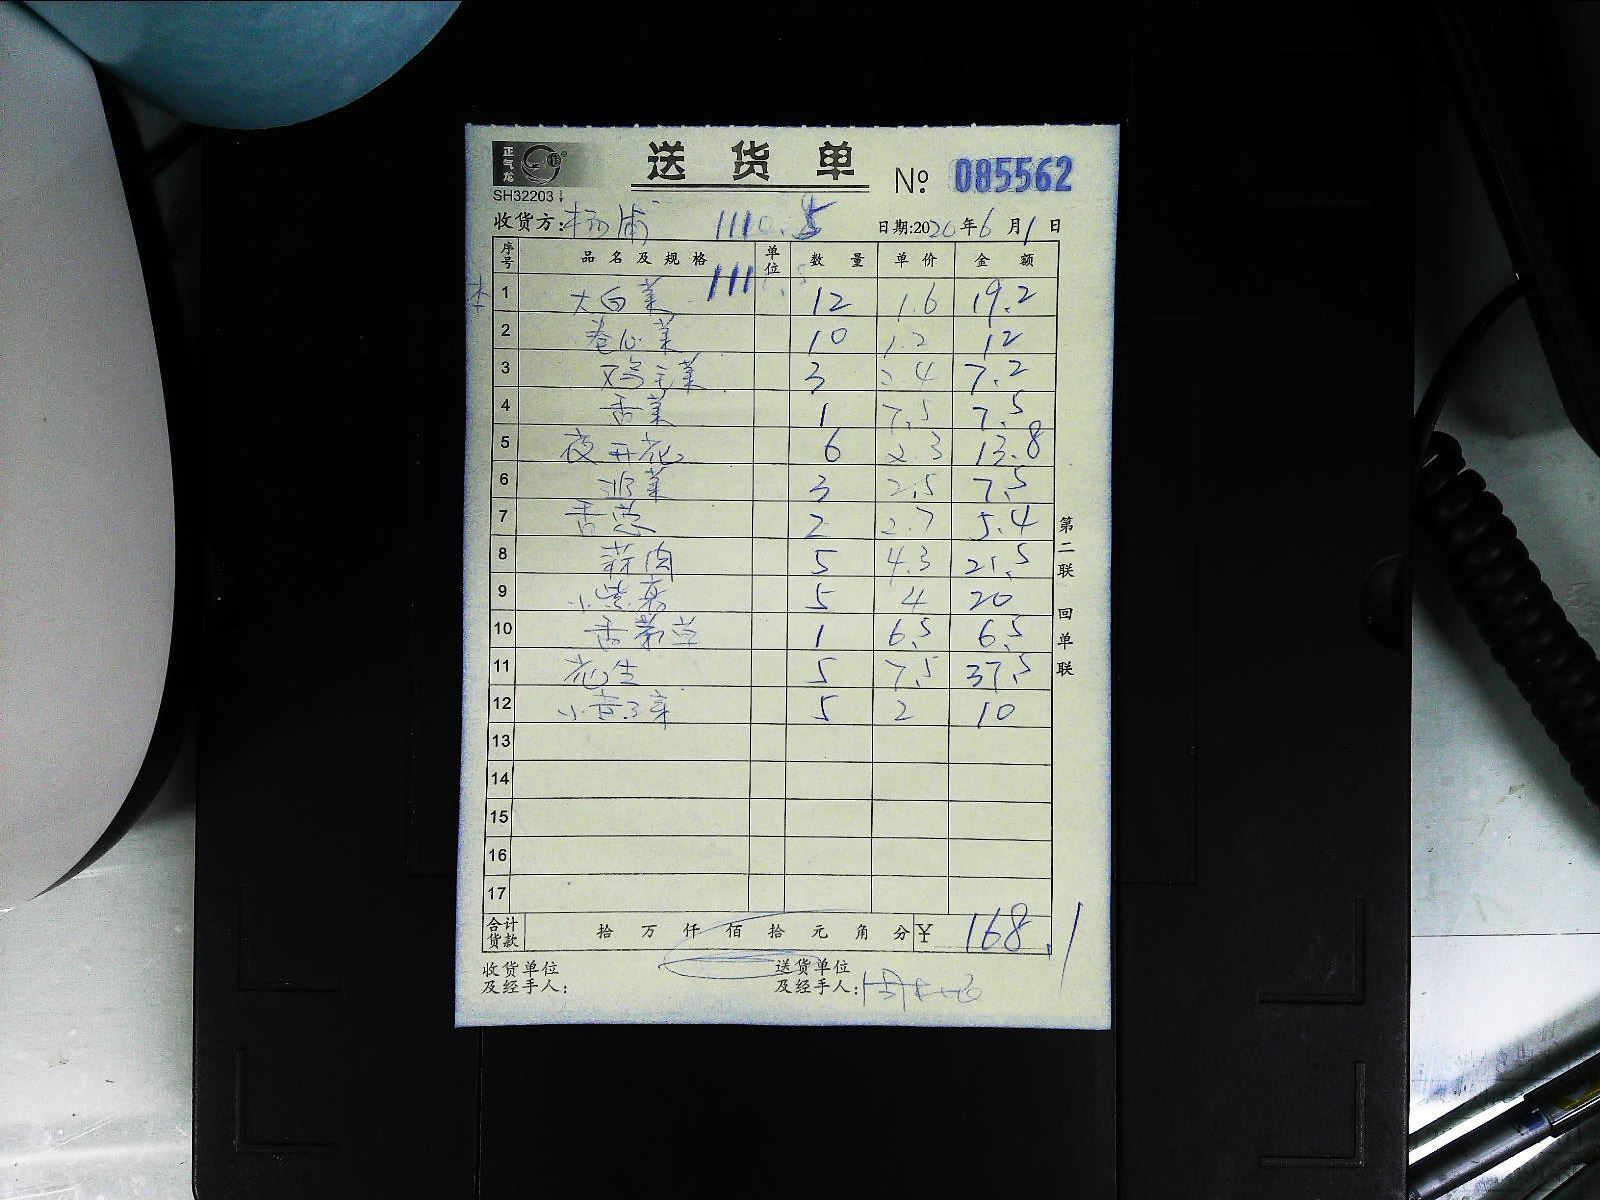 正气龙
送货单 № 085562
SH32203
收货方: 杨浦 1110.5 日期:2020年6月1日
序号 品名及规格 单位 数量 单价 金额
111
1 大白菜 12 1.6 19.2
2 卷心菜 10 1.2 12
3 鸡毛菜 3 2.4 7.2
4 香菜 1 7.5 7.5
5 夜开花 6 2.3 13.8
6 3 2.5 7.5
7 香葱 2 2.7 5.4
8 蒜肉 5 4.3 21.5
9 5 4 20
10 1 6.5 6.5
11 花生 5 7.5 37.5
12 5 2 10
13
14
15
16
17
合计货款 拾 万 仟 佰 拾 元 角 分 ¥ 168.1
收货单位及经手人: 送货单位及经手人:
第二联 回单联